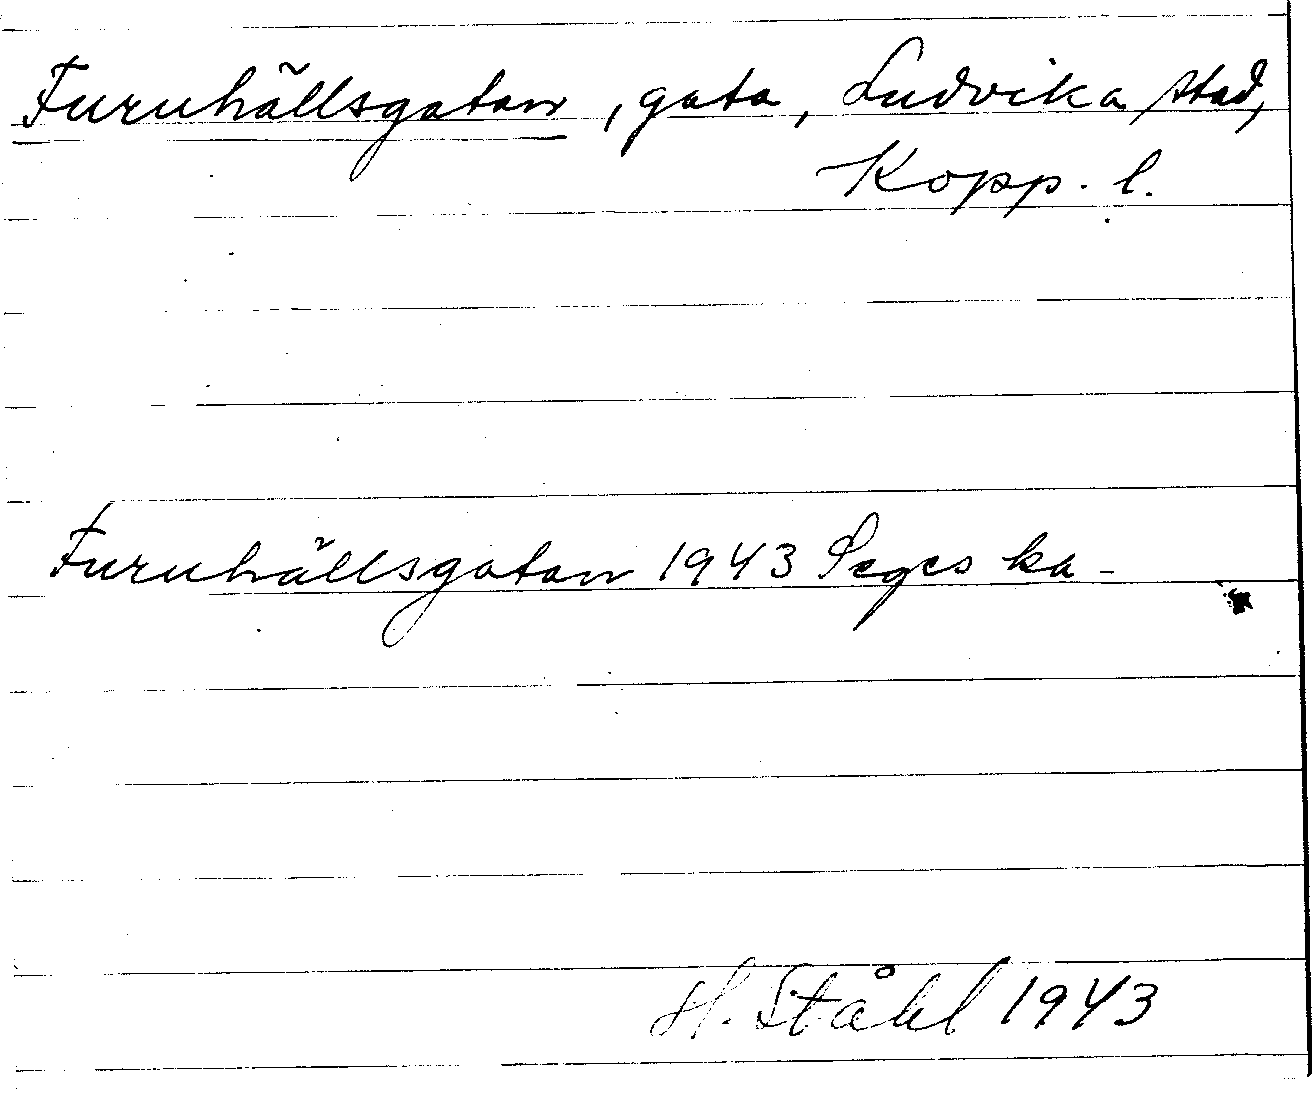 Furuhällsgatan, gata, Ludvika stad,
Kopp. l.
Furuhällsgatan 1943 Seges ka-
H. Ståhl 1943